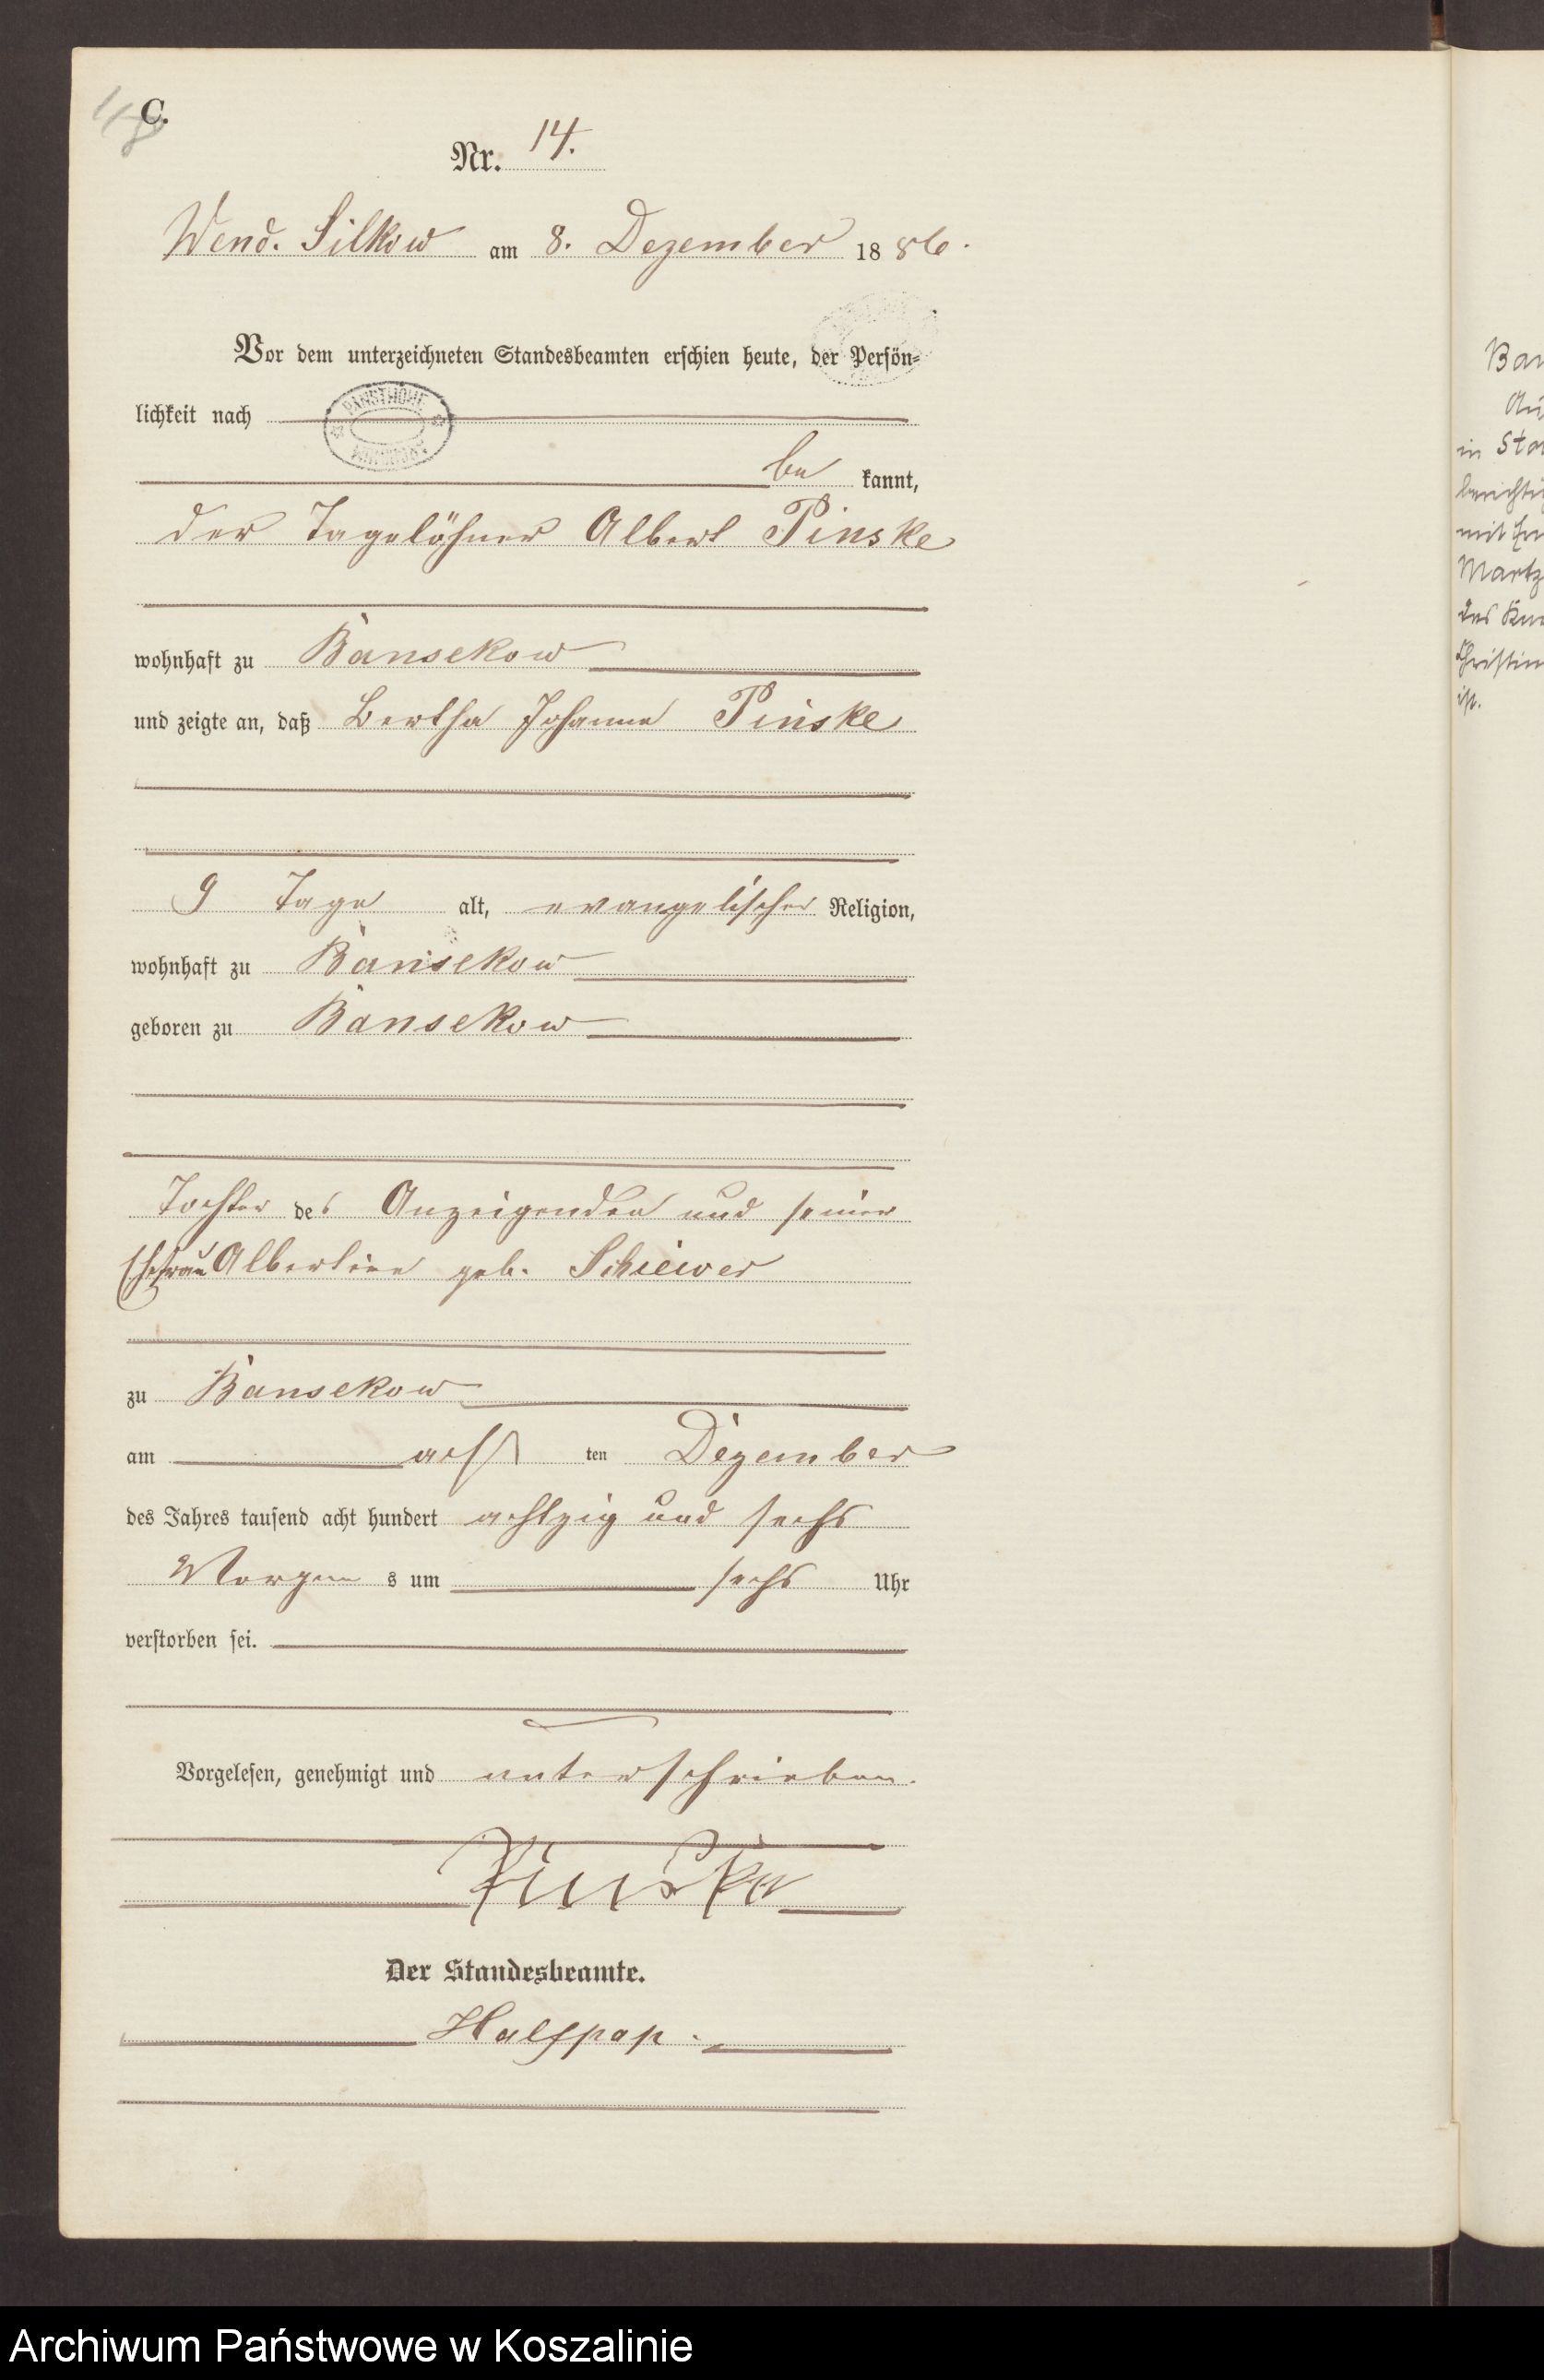 C.
Nr. 14.
Wend. Silkow am 8. Dezember 1886.
Vor dem unterzeichneten Standesbeamten erschien heute, der Persön-
lichkeit nach
be kannt,
der Tagelöhner Albert Pinske
wohnhaft zu Bansekow
und zeigte an, daß Bertha Johanne Pinske
9 Tage alt, evangelischer Religion,
wohnhaft zu Bansekow
geboren zu Bansekow
Tochter des Anzeigenden und seiner
Ehefrau Albertine geb. Schiewer
zu Bansekow
am acht ten Dezember
des Jahres tausend acht hundert achtzig und sechs
Morgen s um sechs Uhr
verstorben sei.
Vorgelesen, genehmigt und unterschrieben.
Pinske
Der Standesbeamte.
Halfpap.
Ban
in Sta
berichti
mit
Martz
des
Christin
ist.
Archiwum Państwowe w Koszalinie